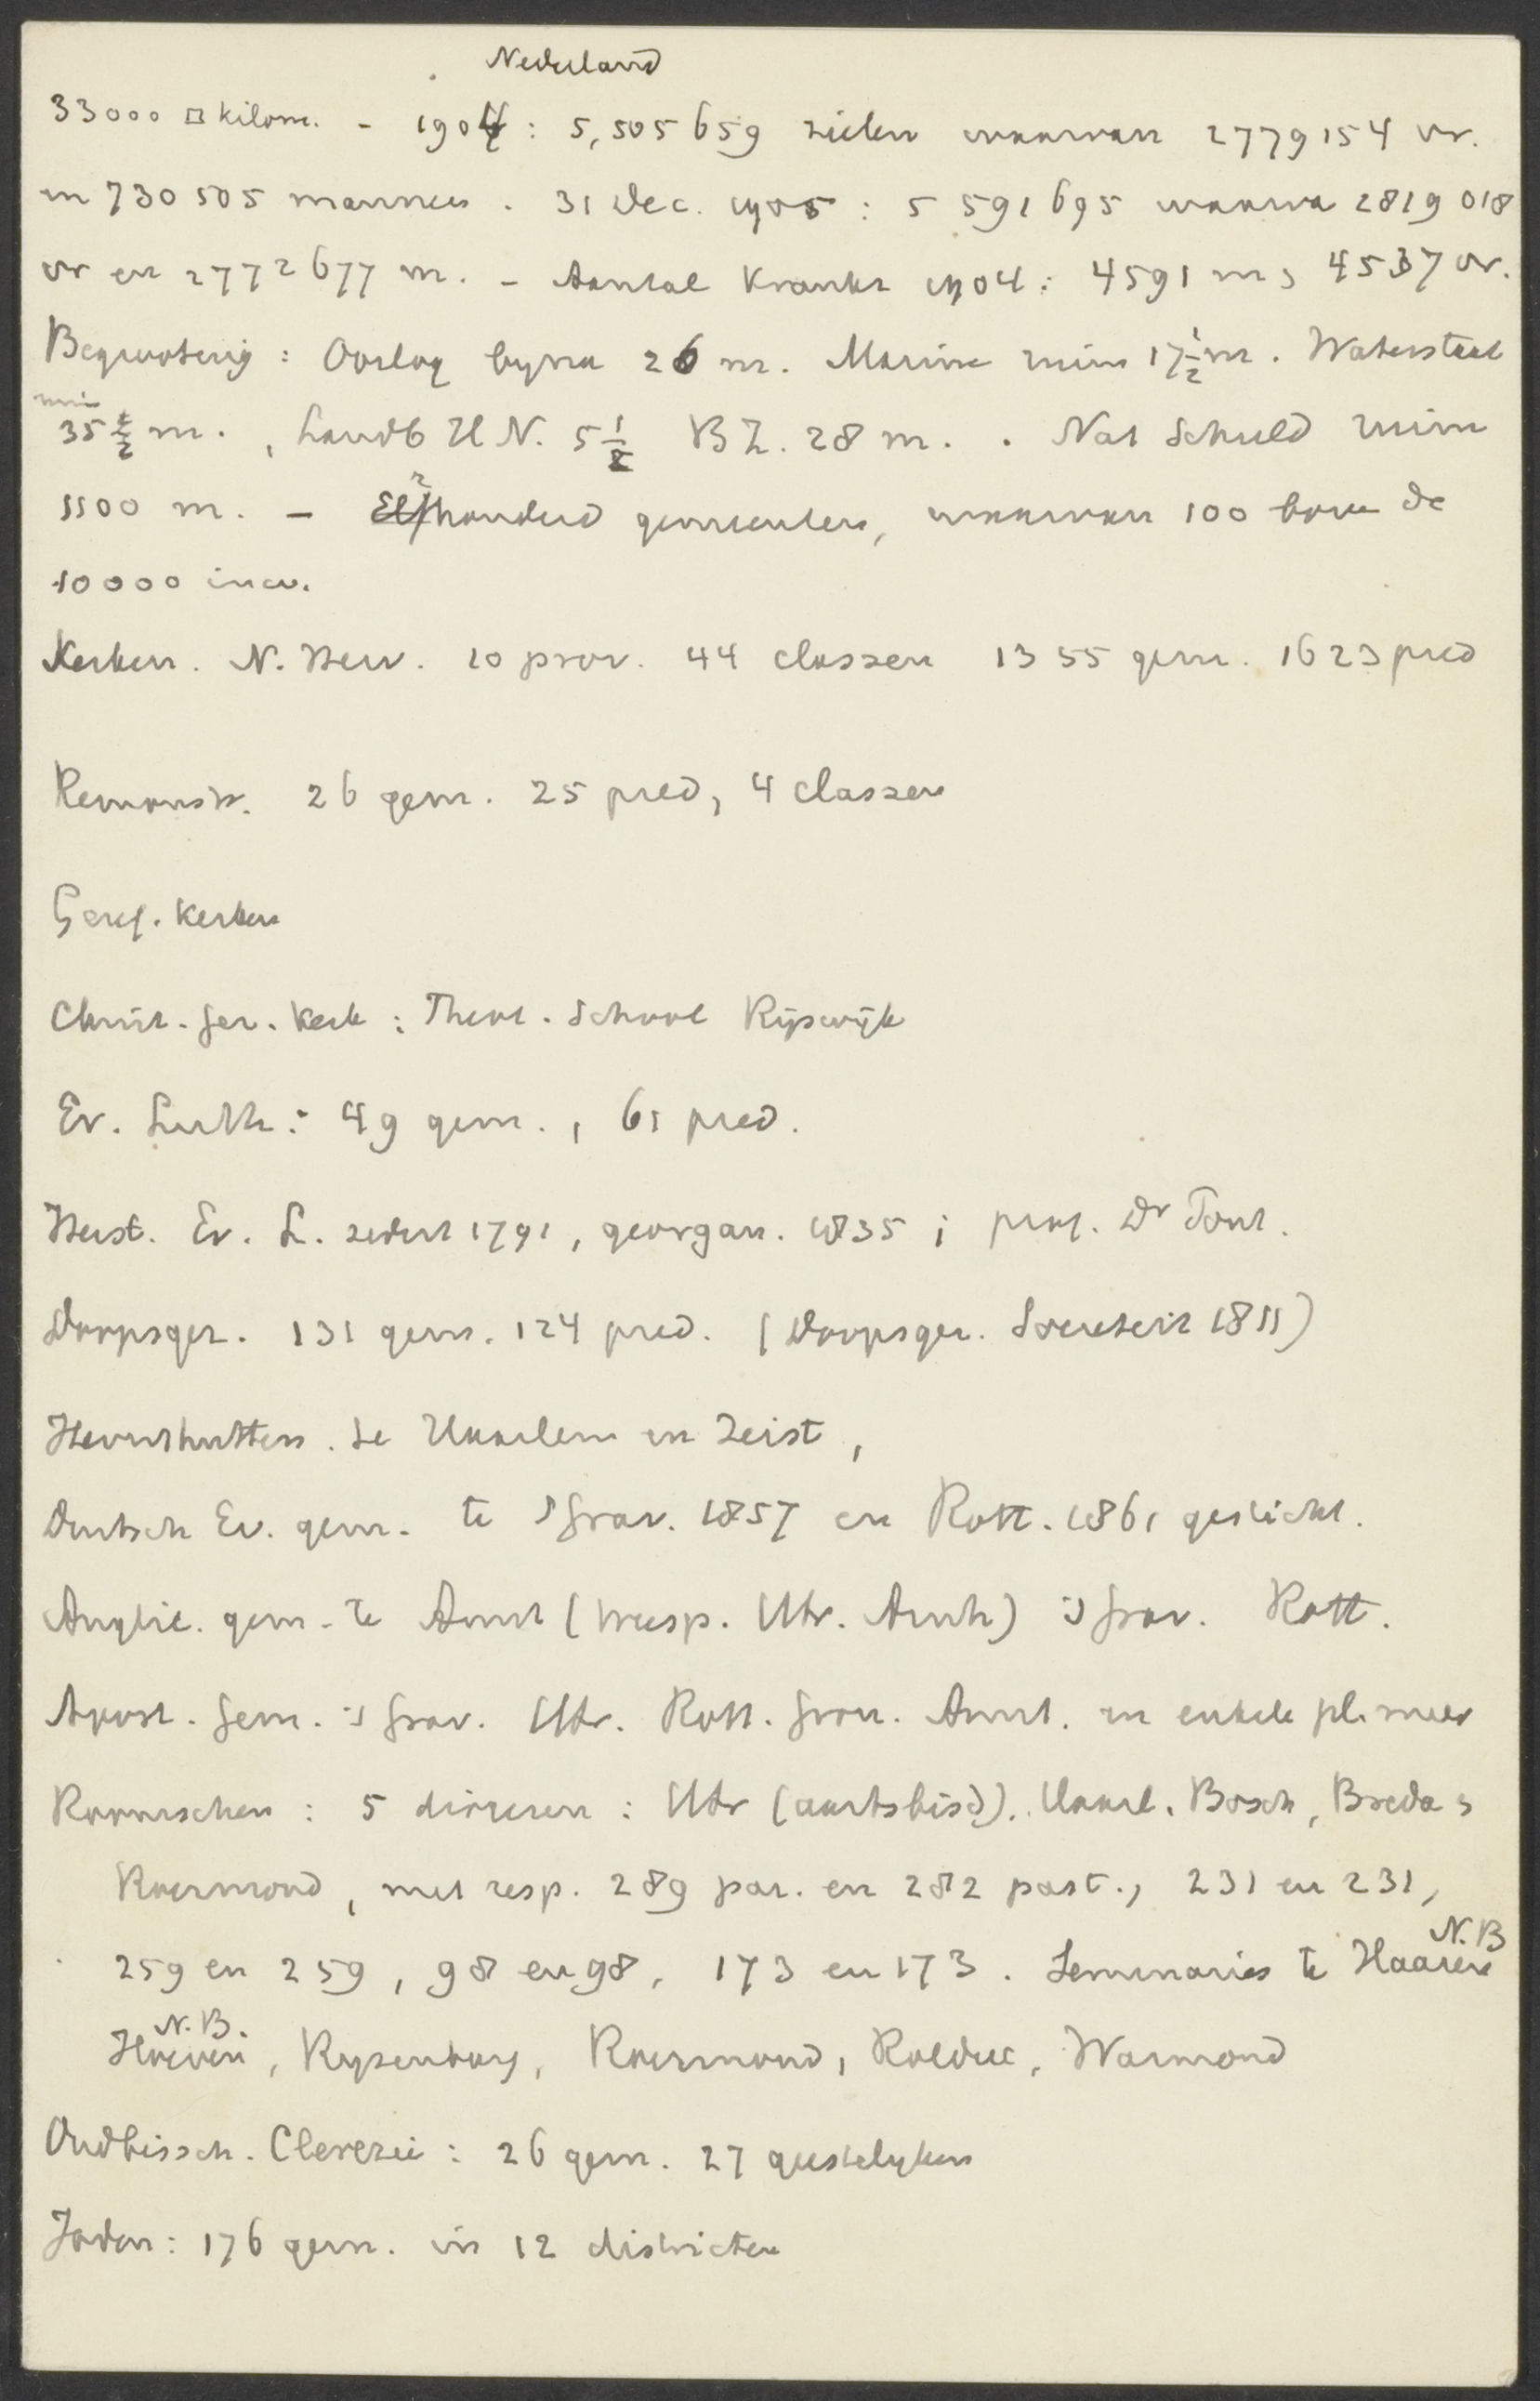 Nederland
33000 □ kilom. - 1904 : 5,505 659 zielen waarvan 2779154 vr.
en 730 505 mannen. 31 Dec. 1905 : 5 591 695 waarva 2819 018
vr en 2772677 m. - Aantal Krankz 1904 : 4591 m, 4537 vr.
Begrooting : Oorlog byna 26 m. Marine ruim 17½ m. Waterstaat
ruim
35½ m. , Landb H N. 5½ B Z. 28 m. . Nat Schuld ruim
1100 m. - Elfhonderd gemeenten, waarvan 100 boven de
10000 inw.
Kerken. N. Herv. 10 prov. 44 classen 1355 gem. 1623 pred
Remonstr. 26 gem. 25 pred, 4 classen
Geref. Kerken
Christ. Ger. Kerk : Theol. School Rijswijk
Ev. Luth : 49 gem. , 61 pred.
Herst. Ev. L. sedert 1791, georgan. 1835 ; prof. Dr
Doopsgez. 131 gem. 124 pred. (Doopsgez. Societeit 1811)
Hernhutters. te Haarlem en Zeist,
Duitsch Ev. gem. te 's Grav. 1857 en Rott. 1861 gesticht.
Anglic. gem. te Amst (weesp. Utr. Arnh) 's Grav. Rott.
Apost. Gem. 's Grav. Utr. Rott. Gron. Amst. en enkele pl. meer
Roomschen : 5 diocesen : Utr (aartsbisd). Haarl. Bosch, Breda,
Roermond, met resp. 289 par. en 282 past., 231 en 231,
259 en 259, 98 en 98, 173 en 173. Seminaries te Haaren N.B
Hoeven N.B., Rysenburg, Roermond, Rolduc, Warmond
Oudbissch. Clerezie : 26 gem. 27 geestelyken
Joden : 176 gem. in 12 districten